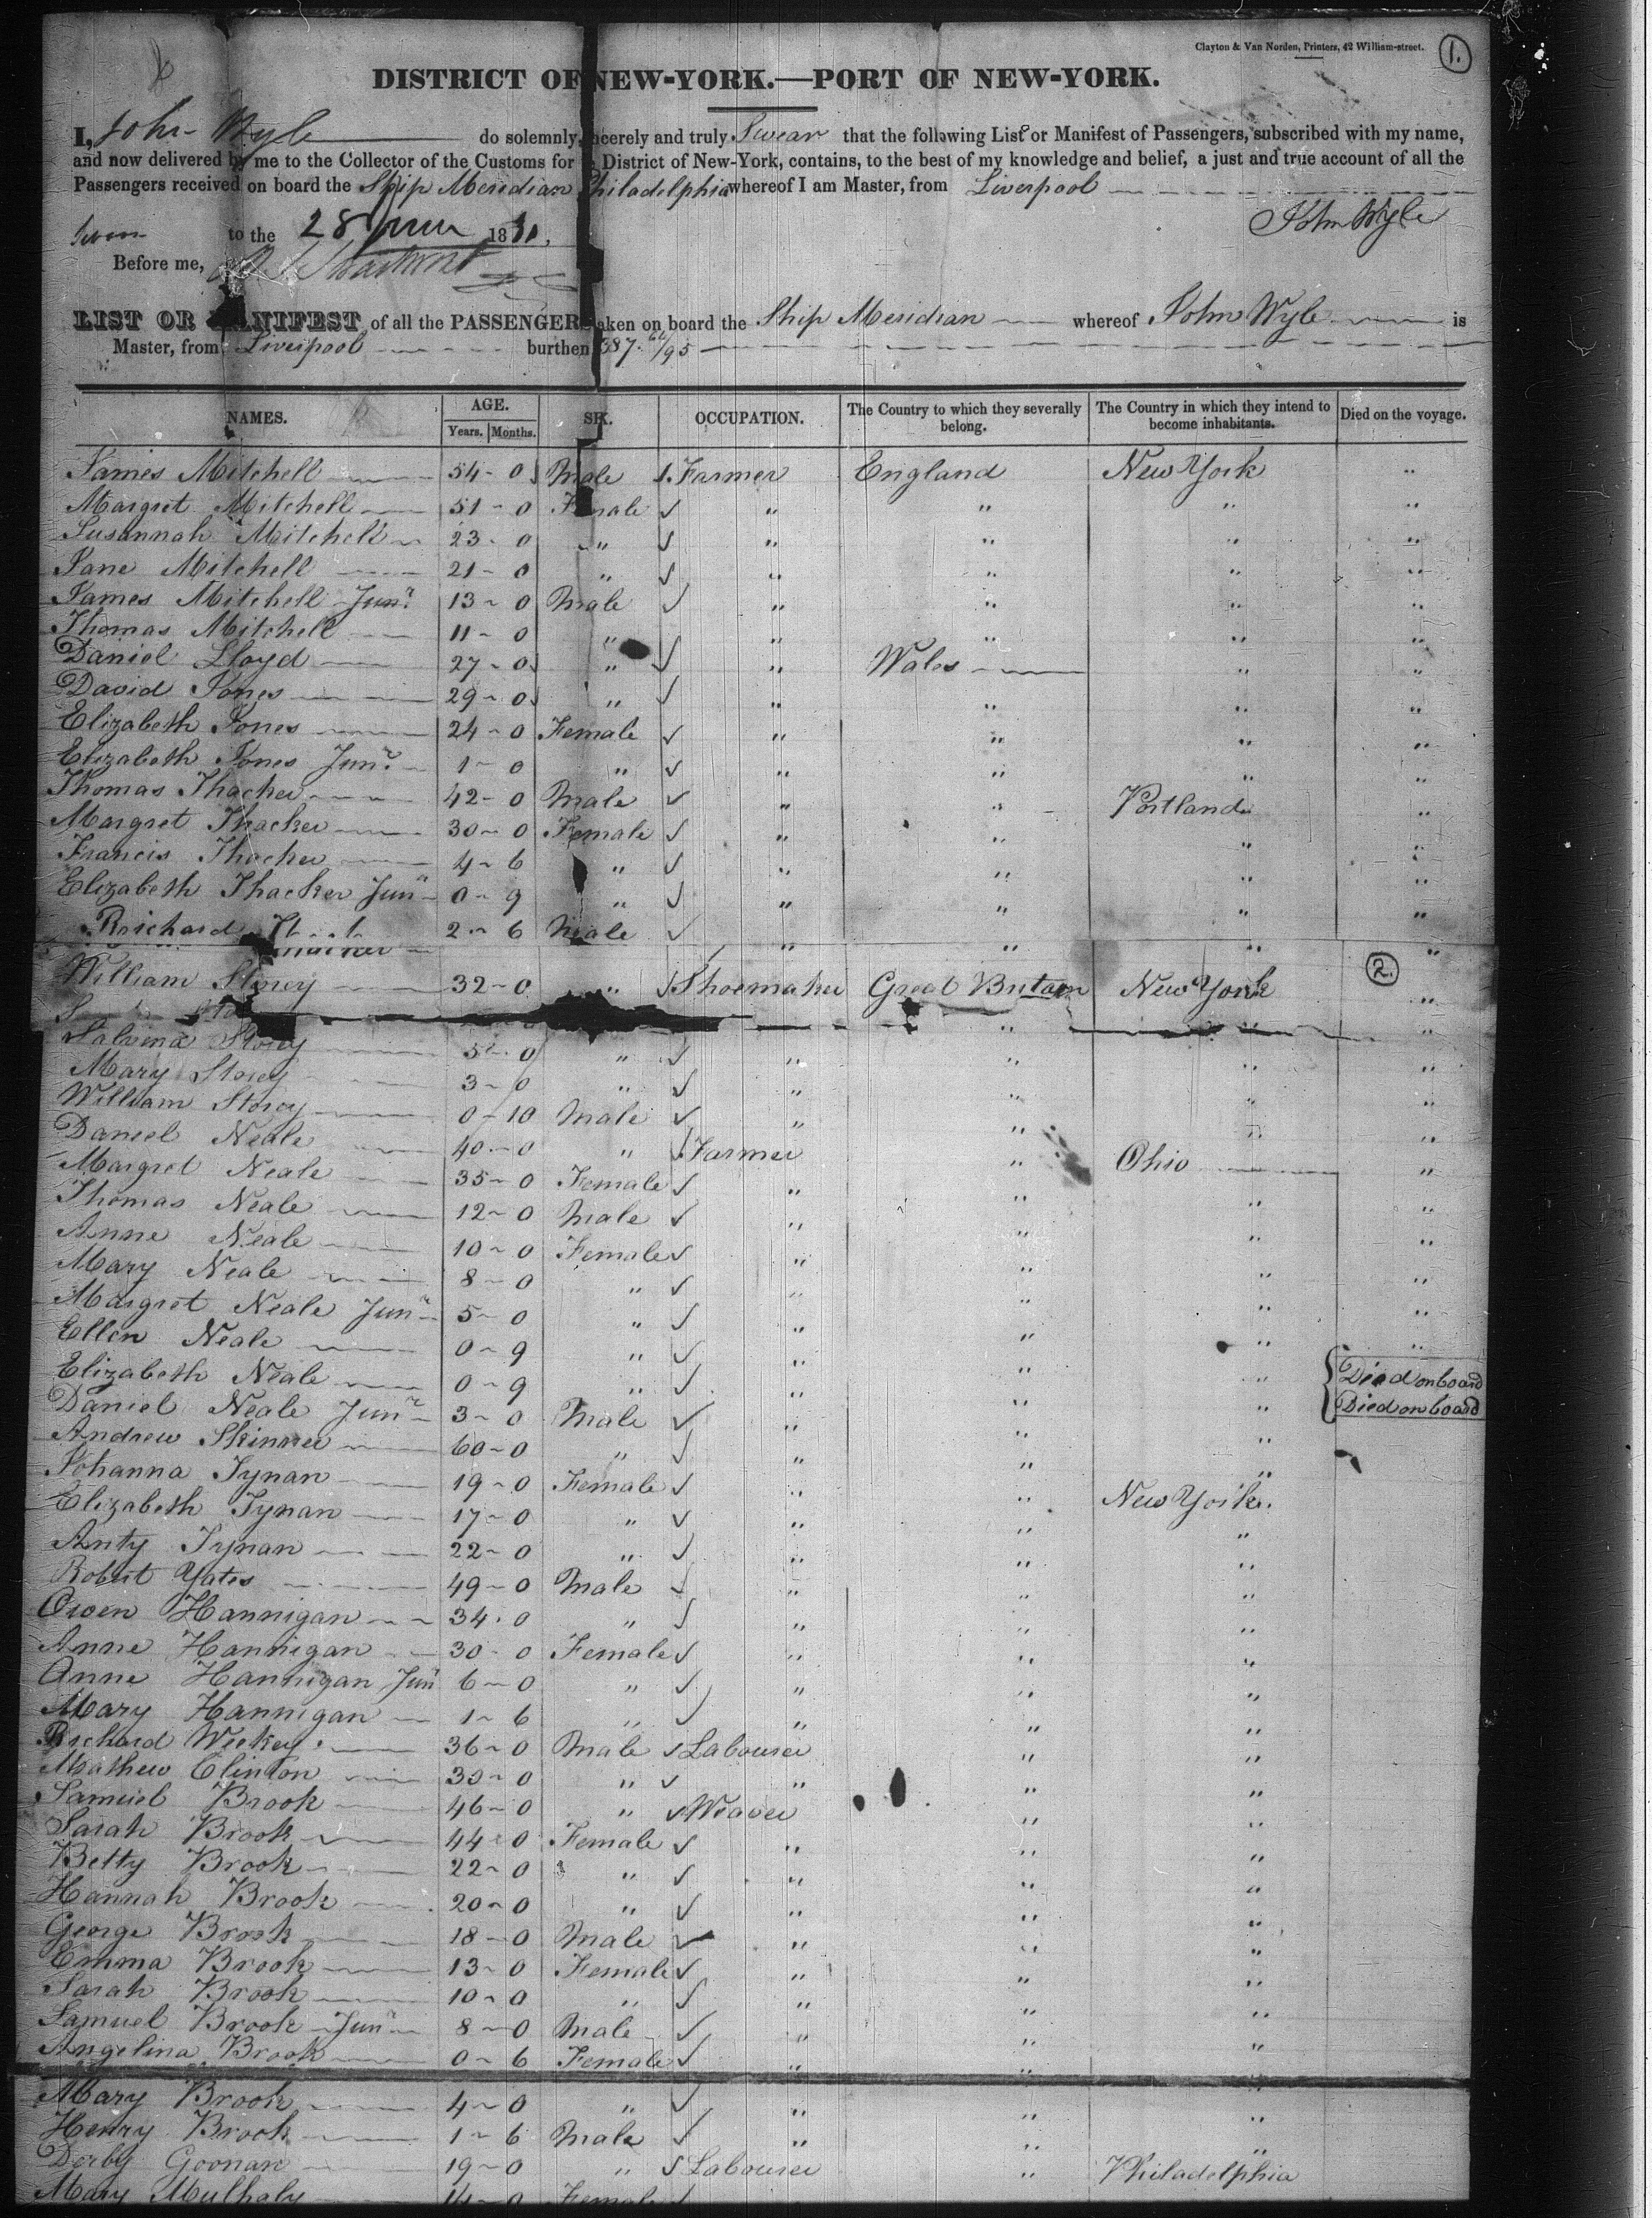 Clayton & Van Norden, Printers, 42 William-street.
1.
DISTRICT OF NEW-YORK.—PORT OF NEW-YORK.
I, John Wyle do solemnly, sincerely and truly Swear that the following List or Manifest of Passengers, subscribed with my name,
and now delivered by me to the Collector of the Customs for District of New-York, contains, to the best of my knowledge and belief, a just and true account of all the
Passengers received on board the Ship Meridian Philadelphia whereof I am Master, from Liverpool
John Wyle
Sworn to the 28 June 1831.
Before me,
LIST OR MANIFEST of all the PASSENGERS taken on board the Ship Meridian whereof John Wyle is
Master, from Liverpool burthen 387 /95
NAMES. AGE. Years. Months. SEX. OCCUPATION. The Country to which they severally belong. The Country in which they intend to become inhabitants. Died on the voyage.
James Mitchell 54 - 0 Male Farmer England New York "
Margret Mitchell 51 - 0 Female " " " "
Susannah Mitchell 23 - 0 " " " " "
Jane Mitchell 21 - 0 " " " " "
James Mitchell Junr. 13 - 0 Male " " " "
Thomas Mitchell 11 - 0 " " " " "
Daniel Lloyd 27 - 0 " " Wales " "
David Jones 29 - 0 " " " " "
Elizabeth Jones 24 - 0 Female " " " "
Elizabeth Jones Junr. 1 - 0 " " " " "
Thomas Thacker 42 - 0 Male " " Portland "
Margret Thacker 30 - 0 Female " " " "
Francis Thacker 4 - 6 " " " " "
Elizabeth Thacker Junr 0 - 9 " " " " "
Richard Thacker 2 - 6 Male " " " "
2.
William Storey 32 - 0 " Shoemaker Great Britain New York "
Salvina Storey 5 - 0 " " " " "
Mary Storey 3 - 0 " " " " "
William Storey 0 - 10 Male " " " "
Daniel Neale 40 - 0 " Farmer " Ohio "
Margret Neale 35 - 0 Female " " " "
Thomas Neale 12 - 0 Male " " " "
Anne Neale 10 - 0 Female " " " "
Mary Neale 8 - 0 " " " " "
Margret Neale Junr 5 - 0 " " " " "
Ellen Neale 0 - 9 " " " " "
Elizabeth Neale 0 - 9 " " " " Died on board
Daniel Neale Junr 3 - 0 Male " " " Died on board
Andrew Skinner 60 - 0 " " " "
Johanna Tynan 19 - 0 Female " " New York.
Elizabeth Tynan 17 - 0 " " " "
Anty Tynan 22 - 0 " " " "
Robert Yates 49 - 0 Male " " "
Owen Hannigan 34 - 0 " " " "
Anne Hannigan 30 - 0 Female " " "
Anne Hannigan Junr 6 - 0 " " " "
Mary Hannigan 1 - 6 " " " "
Richard Wickey 36 - 0 Male Labourer " "
Mathew Clinton 30 - 0 " " " "
Samuel Brook 46 - 0 " Weaver " "
Sarah Brook 44 - 0 Female " " "
Betty Brook 22 - 0 " " " "
Hannah Brook 20 - 0 " " " "
George Brook 18 - 0 Male " " "
Emma Brook 13 - 0 Female " " "
Sarah Brook 10 - 0 " " " "
Samuel Brook Junr 8 - 0 Male " " "
Angelina Brook 0 - 6 Female " " "
Mary Brook 4 - 0 " " " "
Henry Brook 1 - 6 Male " " "
Derby Goonan 19 - 0 " Labourer " Philadelphia
Mary Mulhaly 14 - 0 Female